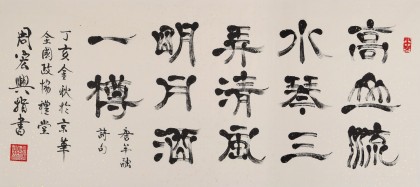 高山流
水琴三
弄清風
明月酒
一樽
唐牟融
詩句
丁亥金秋於京華
全國政協禮堂
周宏興指書